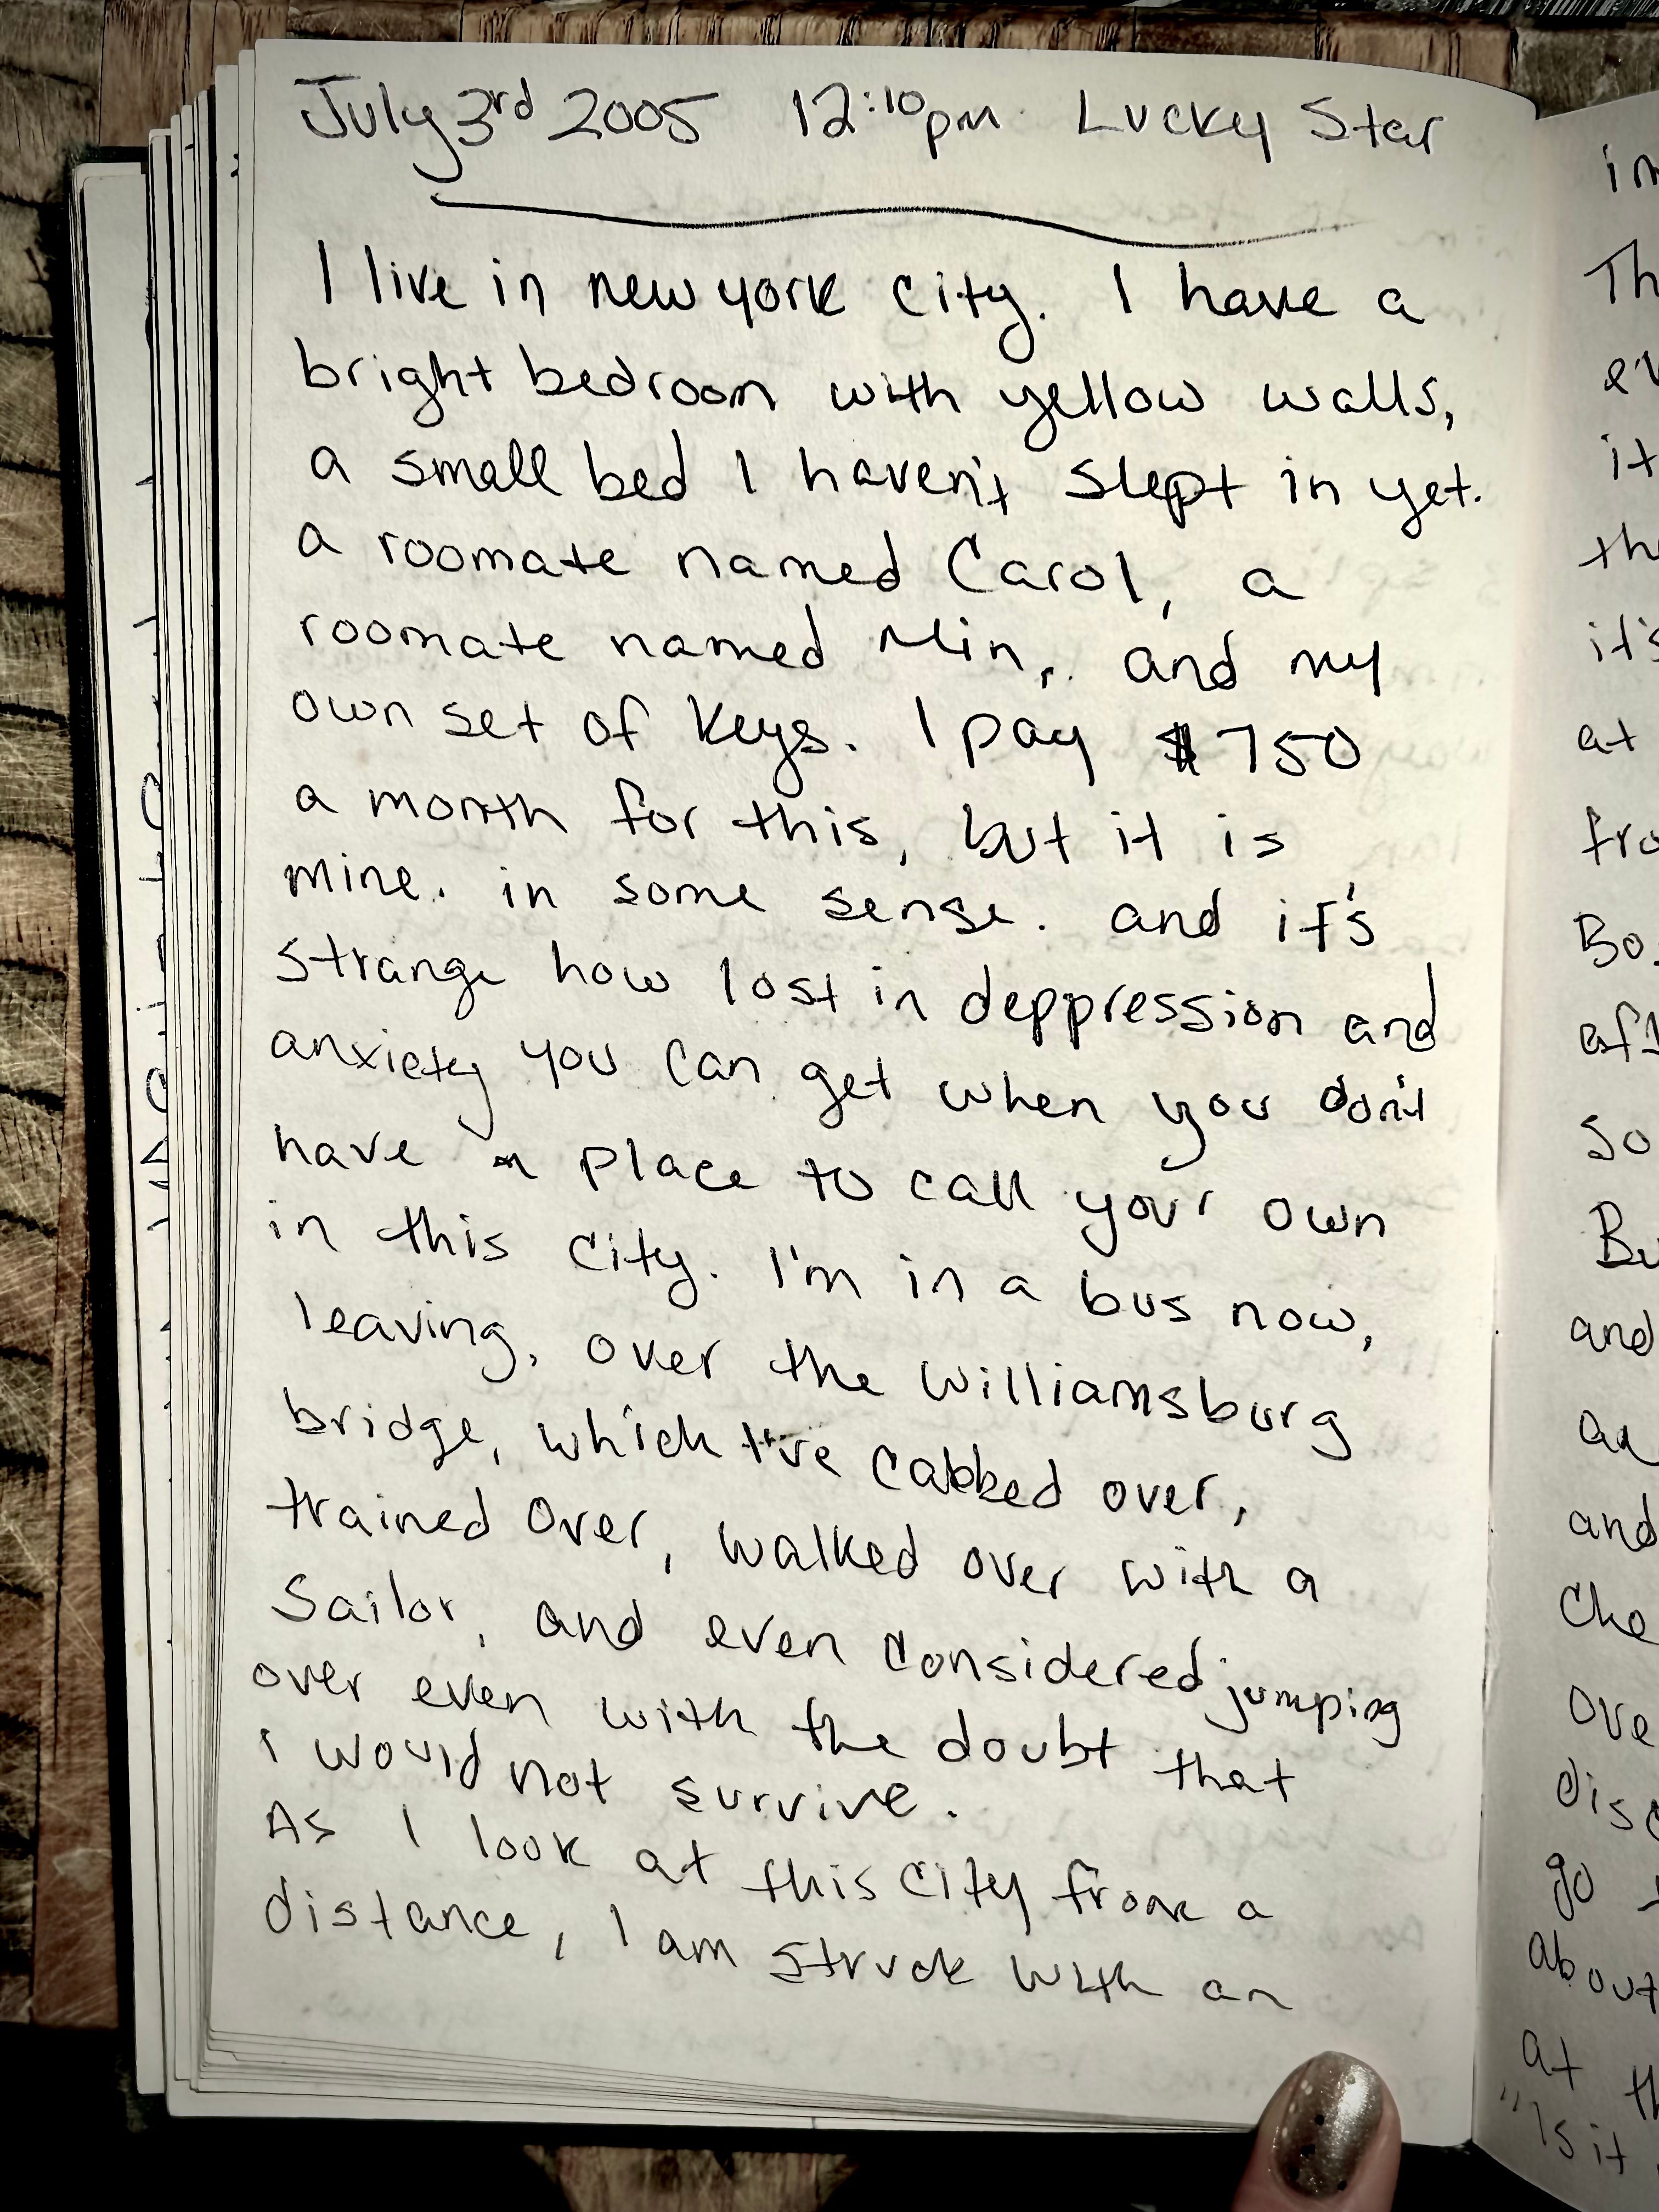 July 3rd 2005 12:10pm Lucky Star
I live in new york city. I have a
bright bedroom with yellow walls,
a small bed I haven't slept in yet.
a roomate named Carol, a
roomate named Min, and my
own set of keys. I pay $750
a month for this, but it is
mine. in some sense. and it's
strange how lost in deppression and
anxiety you can get when you don't
have a place to call your own
in this city. I'm in a bus now,
leaving, over the Williamsburg
bridge, which I've cabbed over,
trained over, walked over with a
Sailor, and even considered jumping
over even with the doubt that
i would not survive.
As I look at this city from a
distance, I am struck with an
in
Th
it
th
it's
at
fro
Bo
aft
so
Bu
and
an
and
Che
ove
disc
go
about
at th
"Is it